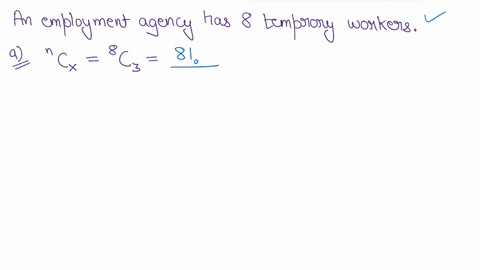 An employment agency has 8 temprory workers. ✓
a) ⁿCₓ = ⁸C₃ = 8!